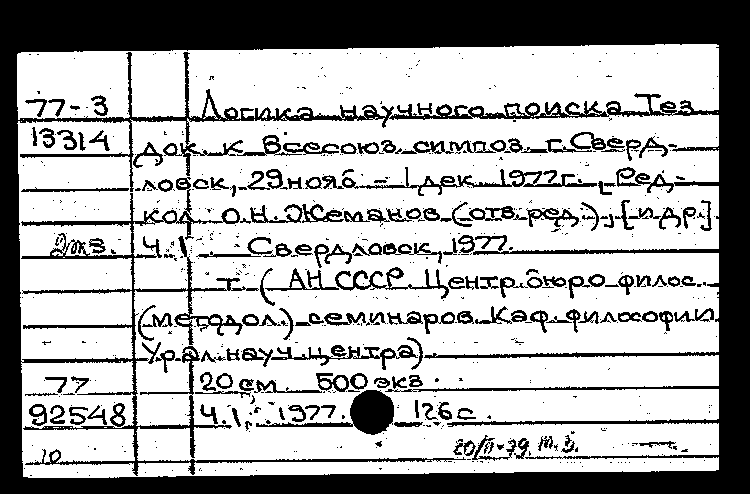 77-3 Логика научного поиска Тез.
13314 док. к Всесоюз. симпоз. г. Сверд-
ловск, 29 нояб - 1 дек. 1977г. [Ред.-
кол. О.Н. Жеманов (отв. ред.), [и др.]
2экз. Ч.1. Свердловск, 1977.
т. (АН СССР. Центр. бюро филос.
(методол.) семинаров. Каф. философии
Урал. науч. центра)
77 20 см. 500 экз.
92548 Ч.1. 1977. 126 с.
20/II-79
10